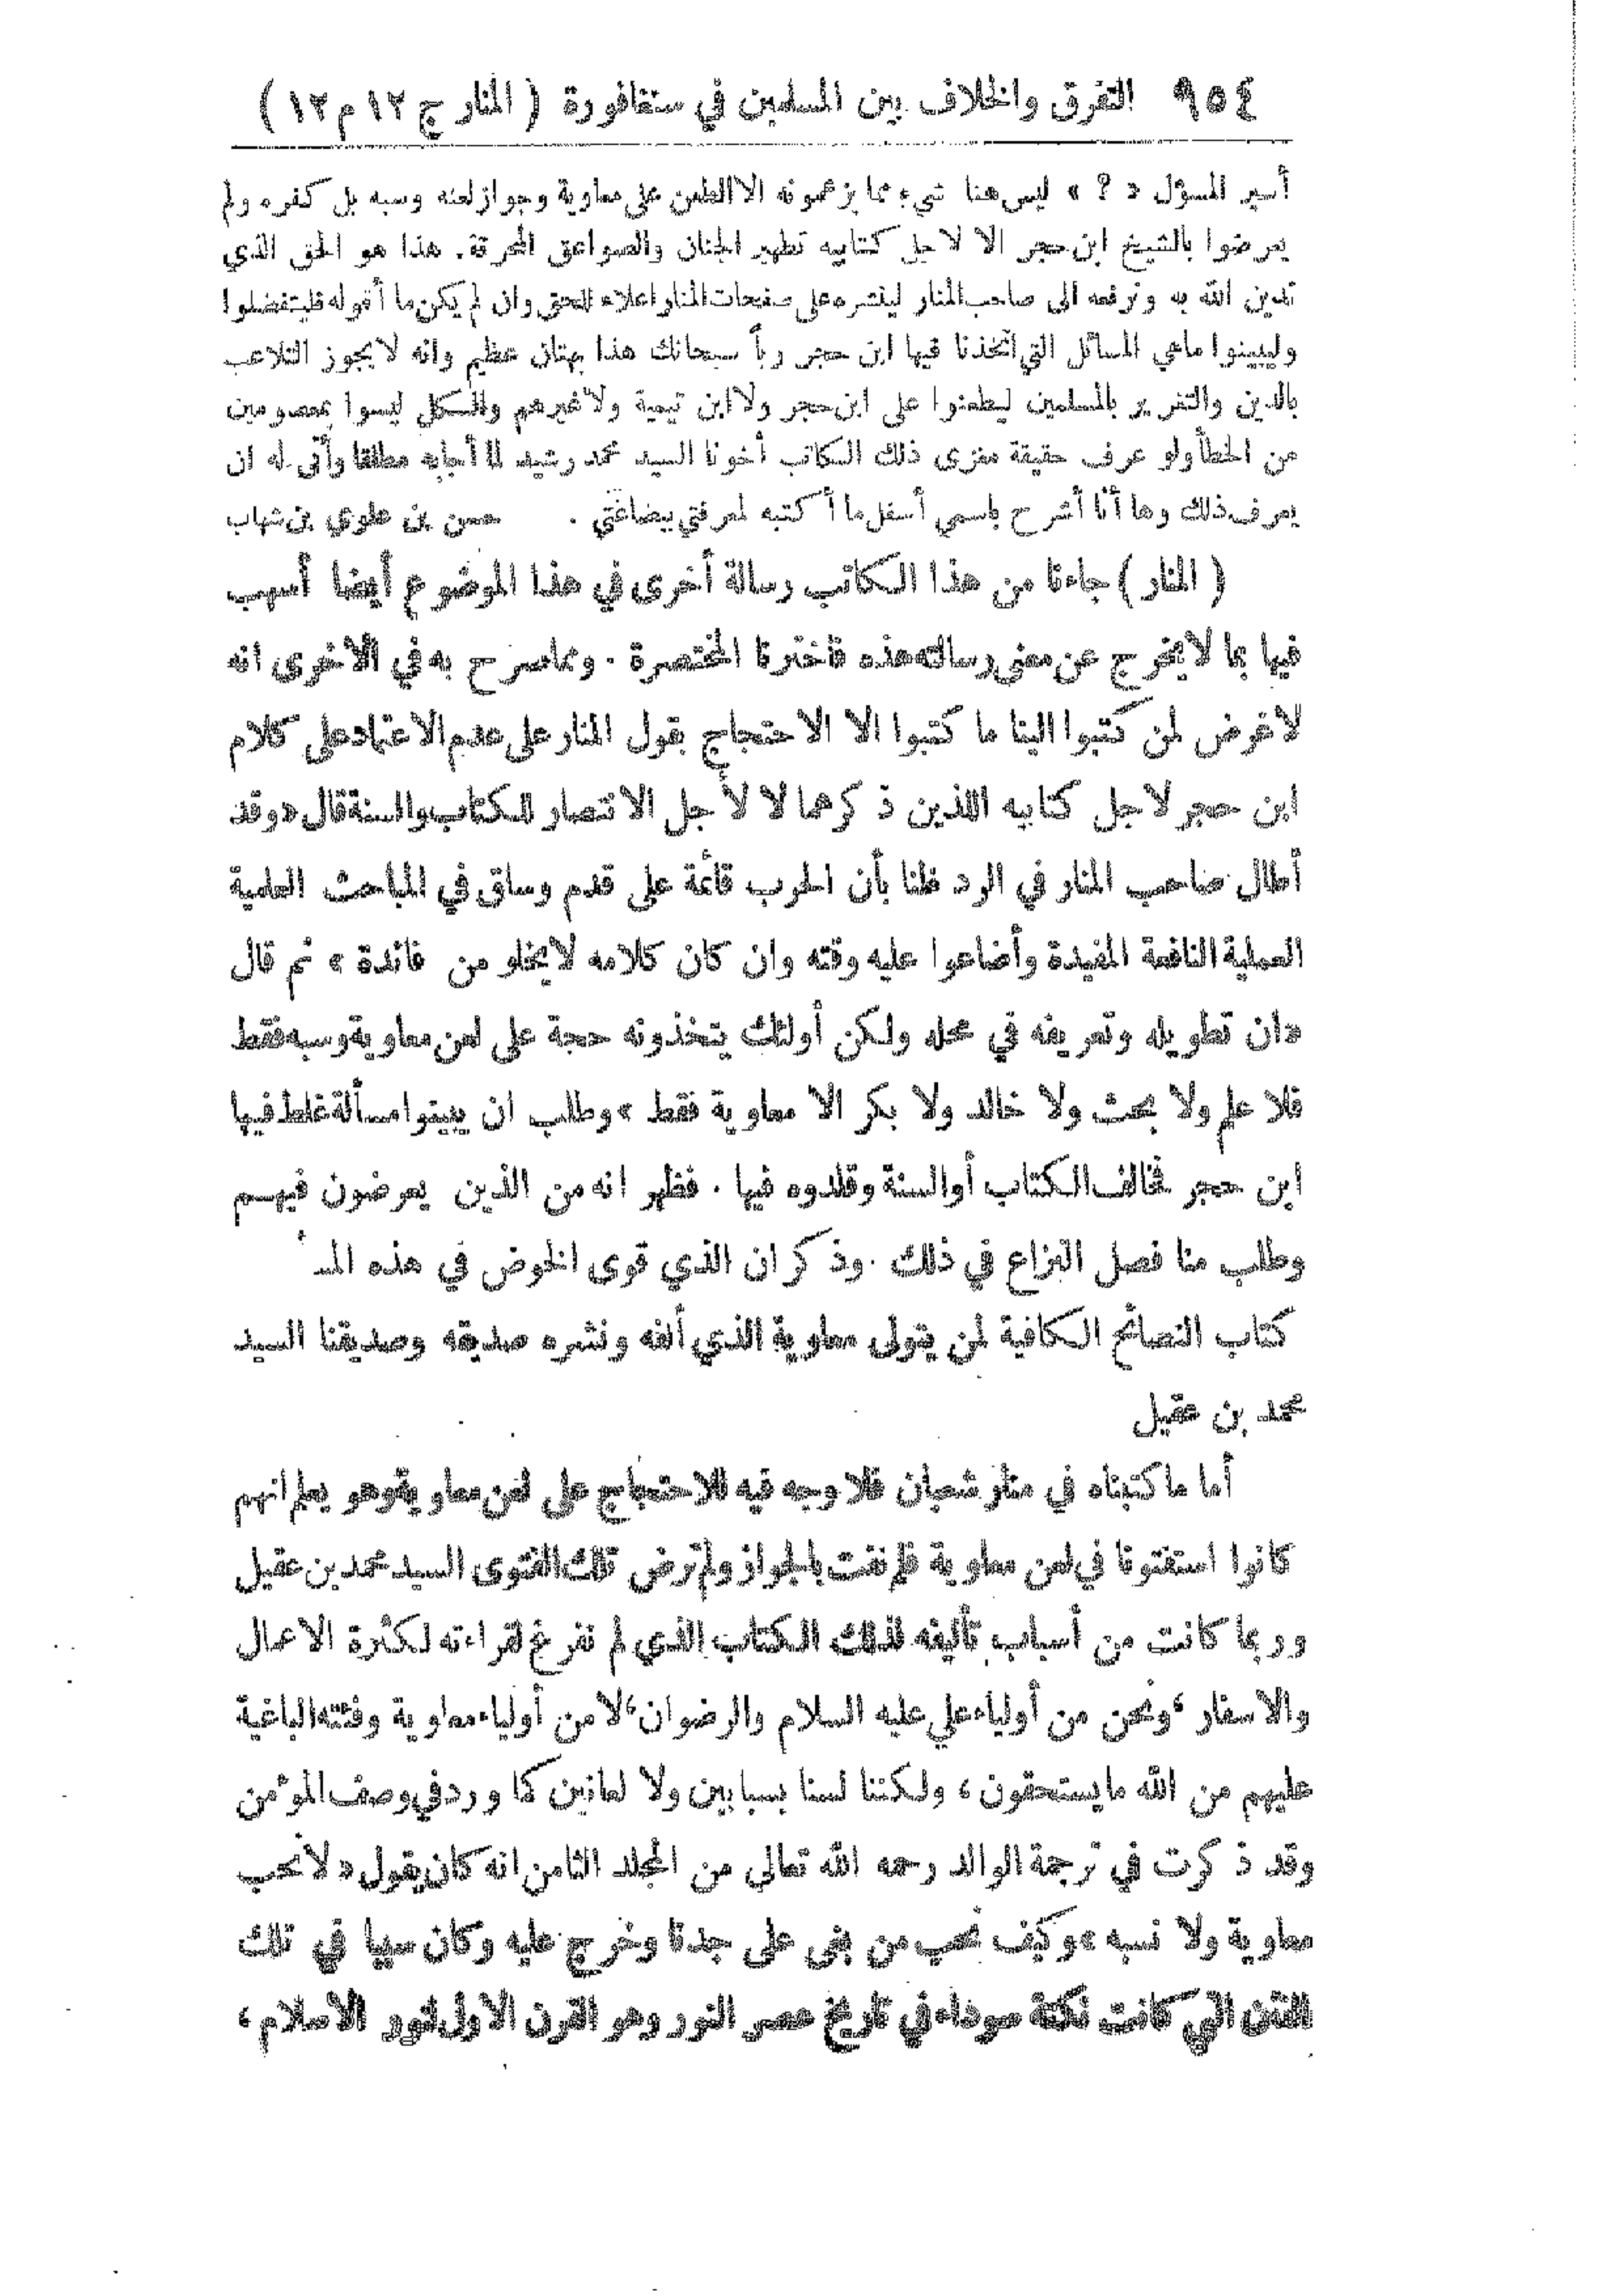 ٩٥٤ التفرق والخلاف بين المسلمين في سنقافورة ( المنار ج ١٢ م ١٢ )
أسير المسؤل « ? » ليس هنا شيء مما يزعمونه الا الطعن على معاوية وجواز لعنه وسبه بل كفره ولم
يعرضوا بالشيخ ابن حجر الا لاجل كتابيه تطهير الجنان والصواعق المحرقة. هذا هو الحق الذي
ندين الله به ونرفعه الى صاحب المنار لينشره على صفحات المنار اعلاء للحق وان لم يكن ما أقوله فليتفضلوا
وليبينوا ماهي المسائل التي اتخذنا فيها ابن حجر رباً سبحانك هذا بهتان عظيم وانه لا يجوز التلاعب
بالدين والتغرير بالمسلمين ليطعنوا على ابن حجر ولا ابن تيمية ولا غيرهم والكل ليسوا بمعصومين
من الخطأ ولو عرف حقيقة مغزى ذلك الكاتب أخونا السيد محمد رشيد لما أجابه مطلقا وأنى له ان
يعرف ذلك وها أنا أشرح باسمي أسفل ما أكتبه لمعرفتي ببضاعتي . حسن بن علوي بن شهاب
( المنار ) جاءنا من هذا الكاتب رسالة أخرى في هذا الموضوع أيضا أسهب
فيها بما لا يخرج عن معنى رسالته هذه فاخترنا المختصرة . ومما صرح به في الاخرى انه
لا غرض لمن كتبوا الينا ما كتبوا الا الاحتجاج بقول المنار على عدم الاعتماد على كلام
ابن حجر لاجل كتابيه اللذين ذكرهما لا لأجل الانتصار للكتاب والسنة قال « وقد
أطال صاحب المنار في الرد ظنا بأن الحرب قائمة على قدم وساق في المباحث العلمية
العملية النافعة المفيدة وأضاعوا عليه وقته وان كان كلامه لا يخلو من فائدة » ثم قال
« ان تطويله وتعريفه في محله ولكن أولئك يتخذونه حجة على لعن معاوية وسبه فقط
فلا علم ولا بحث ولا خالد ولا بكر الا معاوية فقط » وطلب ان يبينوا مسألة غلط فيها
ابن حجر فخالف الكتاب أو السنة وقلدوه فيها . فظهر انه من الذين يعرضون فيهم
وطلب منا فصل النزاع في ذلك . وذكر ان الذي قوى الخوض في هذه المـ
كتاب النصائح الكافية لمن يتولى معاوية الذي ألفه ونشره صديقه وصديقنا السيد
محمد بن عقيل
أما ما كتبناه في منار شعبان فلا وجه فيه للاحتجاج على لعن معاوية وهو يعلم انهم
كانوا استفتونا في لعن معاوية فلم نفت بالجواز ولم ترض تلك الفتوى السيد محمد بن عقيل
وربما كانت من أسباب تأليفه لذلك الكتاب الذي لم نفرغ لقراءته لكثرة الاعمال
والاسفار ، ونحن من أولياء علي عليه السلام والرضوان ، لا من أولياء معاوية وفئته الباغية
عليهم من الله ما يستحقون ، ولكننا لسنا بسبابين ولا لعانين كما ورد في وصف المؤمن
وقد ذكرت في ترجمة الوالد رحمه الله تعالى من المجلد الثامن انه كان يقول « لا نحب
معاوية ولا نسبه » وكيف نحب من بغى على جدنا وخرج عليه وكان سببا في تلك
الفتن التي كانت نكتة سوداء في تاريخ عصر النور وهو القرن الاول لنور الاسلام ،